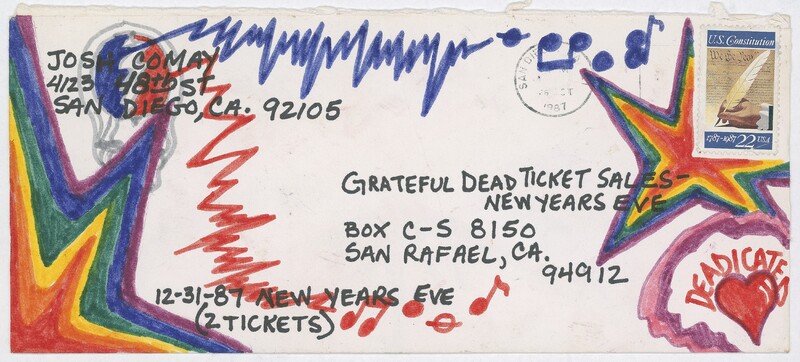 JOSH COMAY
4123 48th ST
SAN DIEGO, CA. 92105
SAN DIEGO
OCT
1987
U.S. Constitution
We the People
1787-1987 USA 22
GRATEFUL DEAD TICKET SALES-
NEW YEARS EVE
BOX C-S 8150
SAN RAFAEL, CA.
94912
DEADICATED
12-31-87 NEW YEARS EVE
(2 TICKETS)